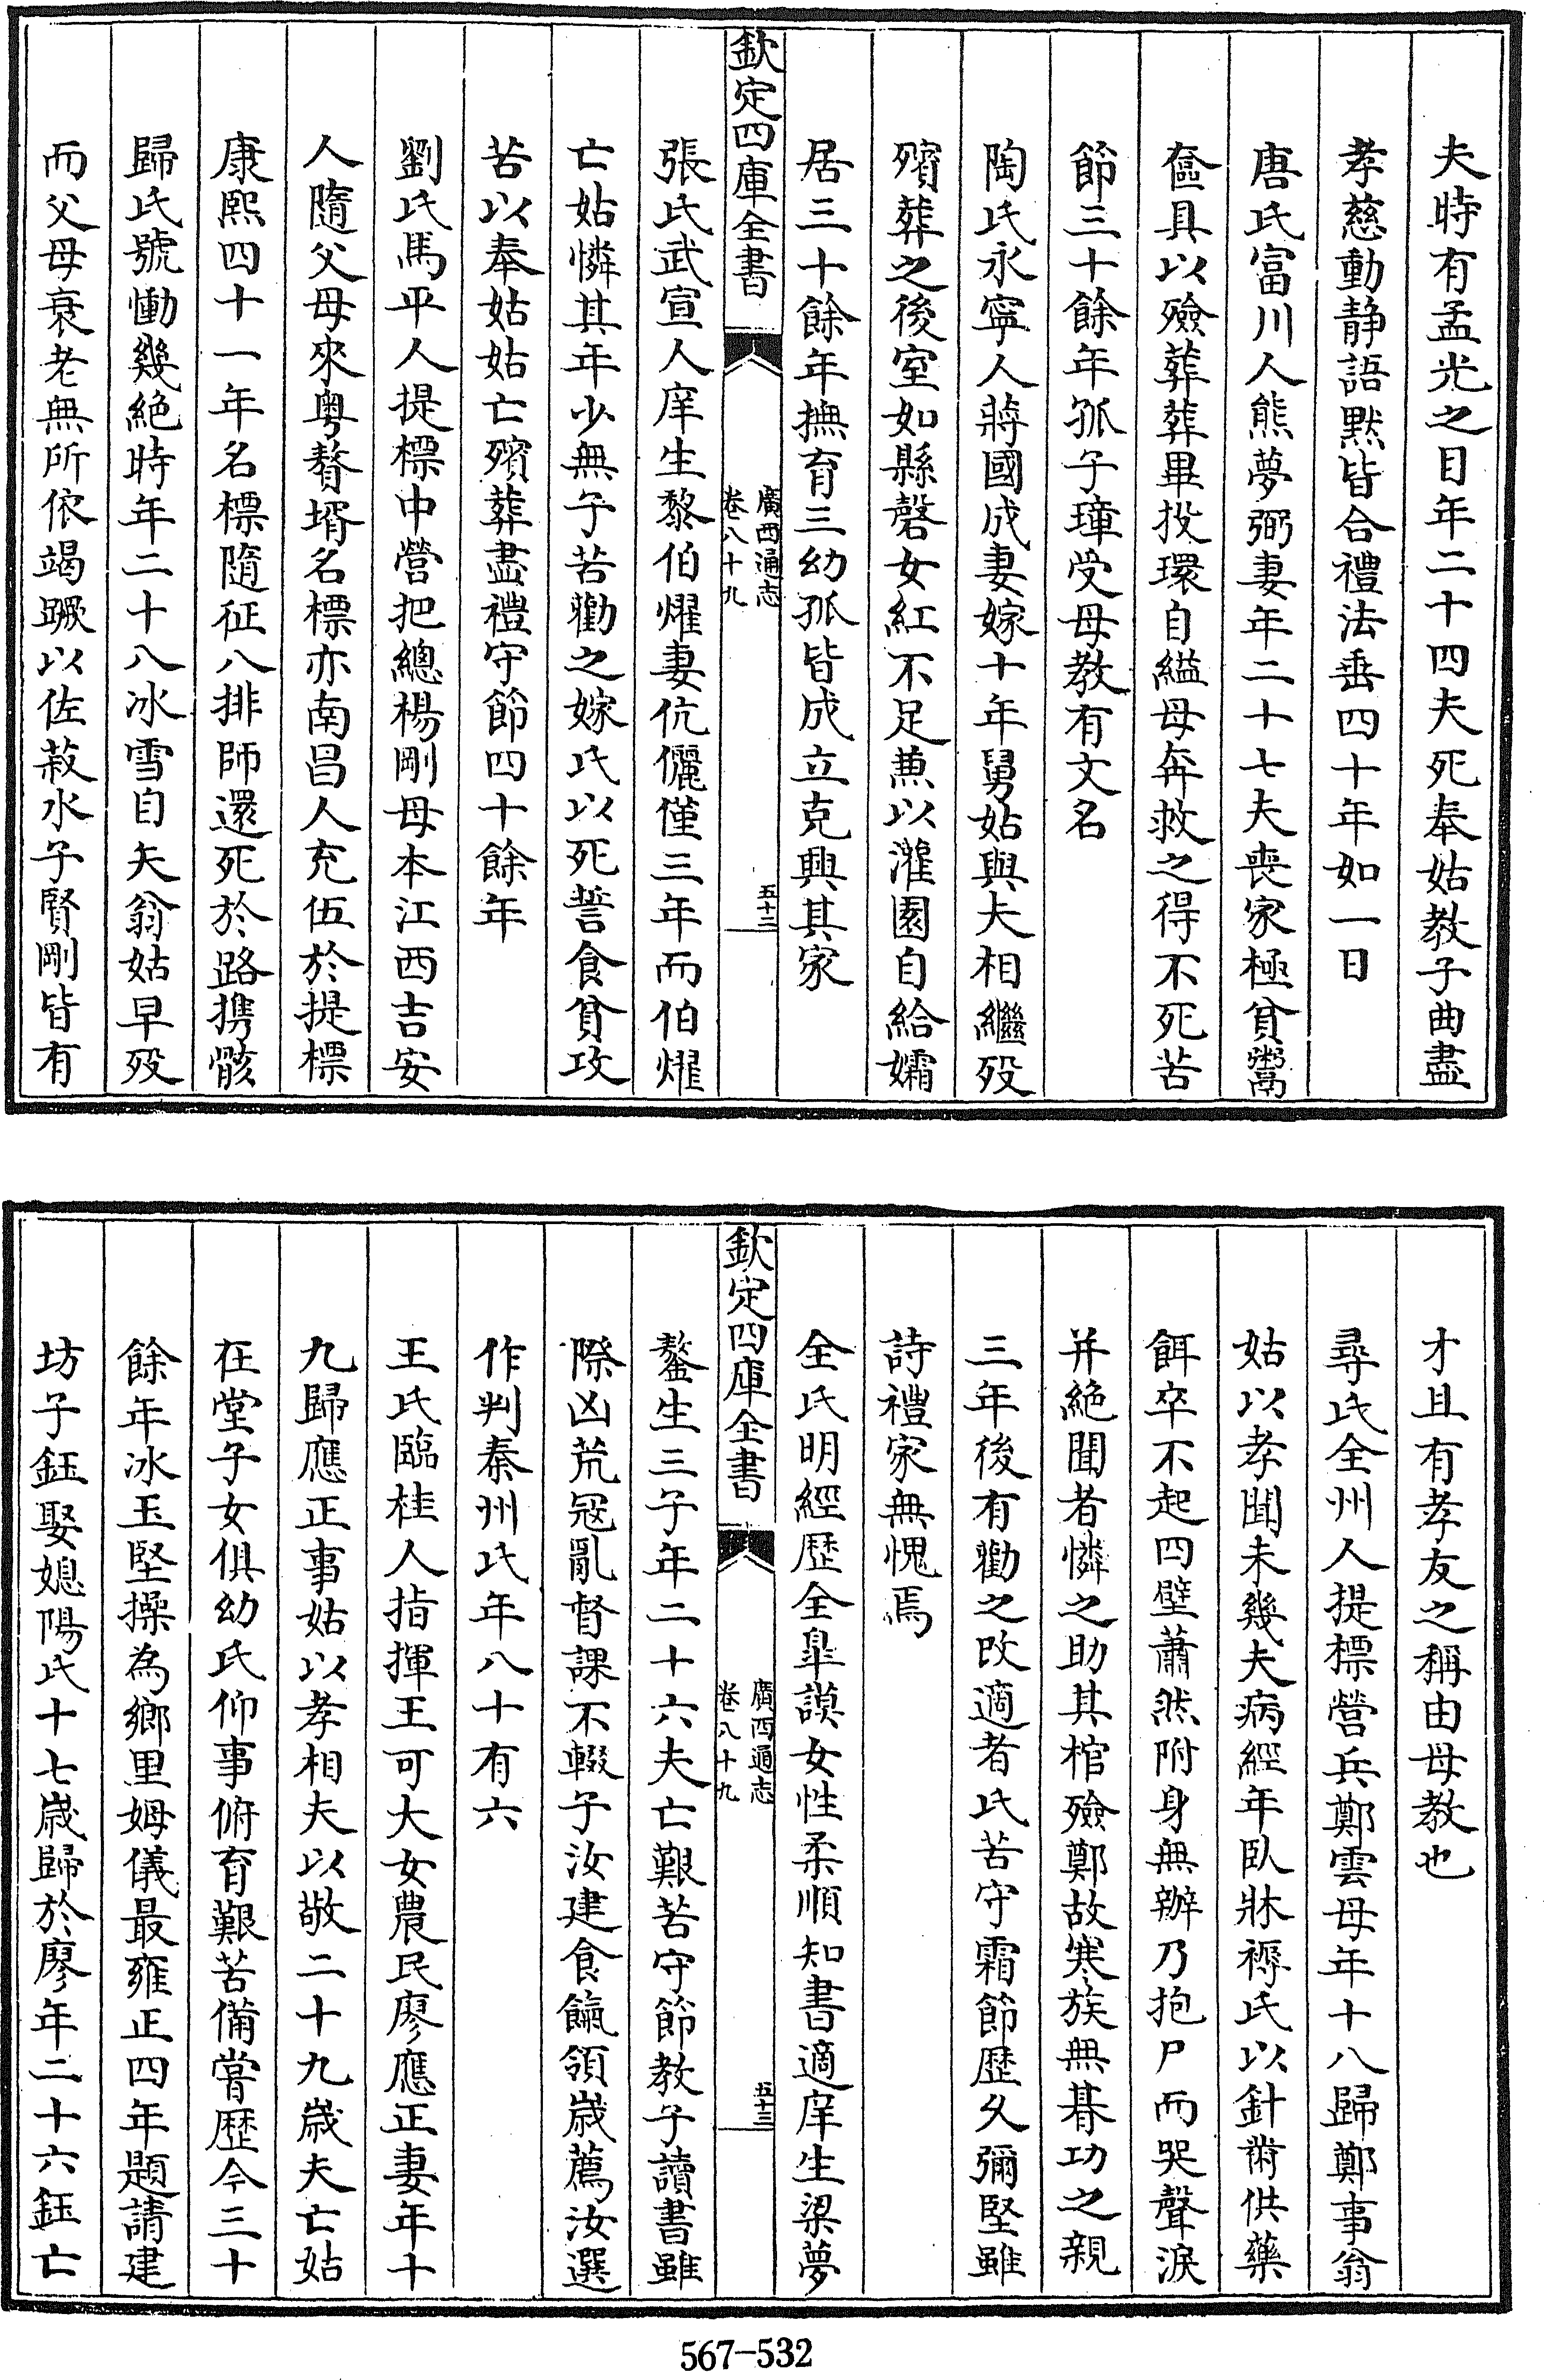 夫時有孟光之目年二十四夫死奉姑教子曲盡
孝慈動静語黙皆合禮法垂四十年如一日
唐氏富川人熊夢弼妻年二十七夫喪家極貧鬻
奩具以殮葬葬畢投環自縊母奔救之得不死苦
節三十餘年孤子璋受母教有文名
陶氏永寧人蔣國成妻嫁十年舅姑與夫相繼歿
殯葬之後室如縣磬女紅不足兼以灌園自給孀
居三十餘年撫育三幼孤皆成立克興其家
欽定四庫全書
廣西通志
卷八十九
五十二
張氏武宣人庠生黎伯燿妻伉儷僅三年而伯燿
亡姑憐其年少無子苦勸之嫁氏以死誓食貧攻
苦以奉姑姑亡殯葬盡禮守節四十餘年
劉氏馬平人提標中營把總楊剛母本江西吉安
人隨父母來粤贅壻名標亦南昌人充伍於提標
康熙四十一年名標隨征八排師還死於路携骸
歸氏號慟幾絶時年二十八冰雪自矢翁姑早歿
而父母衰老無所依竭蹶以佐菽水子賢剛皆有
才且有孝友之稱由母教也
尋氏全州人提標營兵鄭雲母年十八歸鄭事翁
姑以孝聞未幾夫病經年臥牀褥氏以針黹供藥
餌卒不起四壁蕭然附身無辦乃抱尸而哭聲淚
并絶聞者憐之助其棺殮鄭故寒族無朞功之親
三年後有勸之改適者氏苦守霜節歴久彌堅雖
詩禮家無愧焉
全氏明經歴全臯謨女性柔順知書適庠生梁夢
欽定四庫全書
廣西通志
卷八十九
五十三
鰲生三子年二十六夫亡艱苦守節教子讀書雖
際凶荒冦亂督課不輟子汝建食餼領歲薦汝選
作判泰州氏年八十有六
王氏臨桂人指揮王可大女農民廖應正妻年十
九歸應正事姑以孝相夫以敬二十九歲夫亡姑
在堂子女俱幼氏仰事俯育艱苦備嘗歴今三十
餘年冰玉堅操為鄉里姆儀最雍正四年題請建
坊子鈺娶媳陽氏十七歲歸於廖年二十六鈺亡
567-532